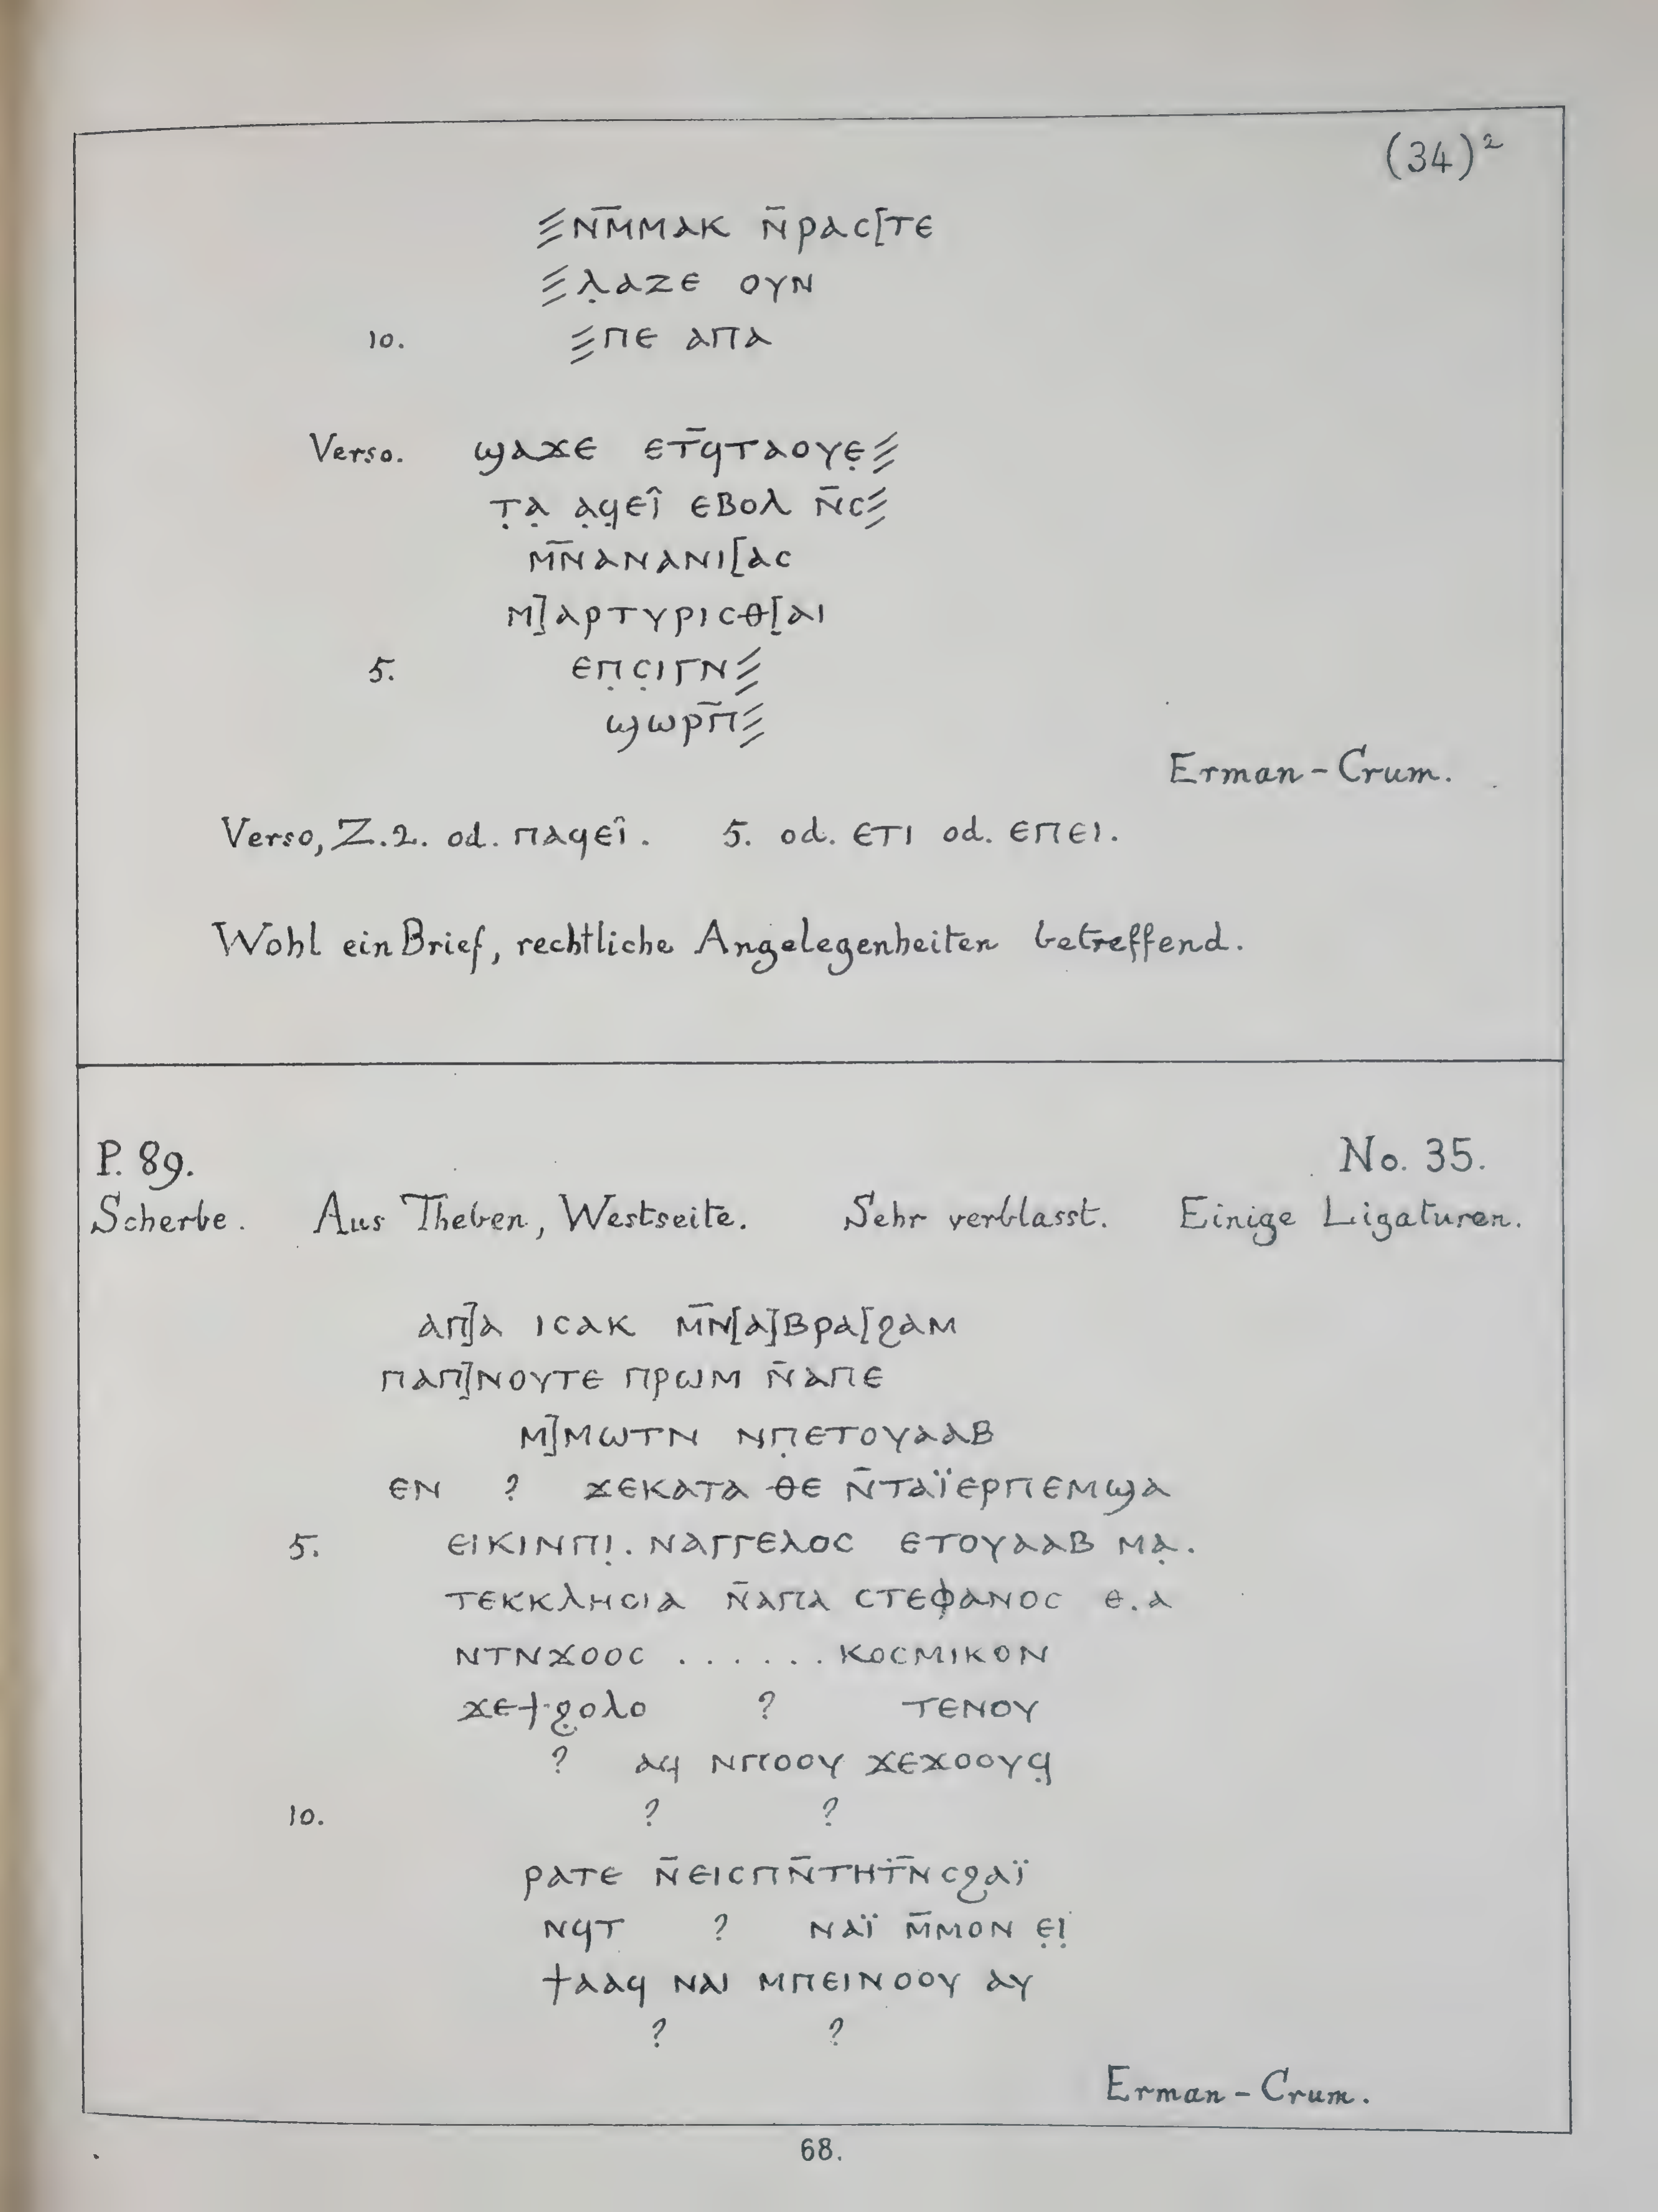 (34)²
⳽ⲛ̅ⲙ̅ⲙⲁⲕ ⲛ̅ⲣⲁⲥ[ⲧⲉ
⳽ⲗ̣ⲁⲍⲉ ⲟⲩⲛ
10. ⳽ⲡⲉ ⲁⲡⲁ
Verso. ϣⲁϫⲉ ⲉⲧ̅ϥⲧⲁⲟⲩⲉ̣⳽
ⲧ̣ⲁ̣ ⲁ̣ϥ̣ⲉⲓ̂ ⲉⲃⲟⲗ ⲛ̅ⲥ⳽
ⲙ̅ⲛ̅ⲁⲛⲁⲛⲓ[ⲁⲥ
ⲙ]ⲁⲣⲧⲩⲣⲓⲥⲑ[ⲁⲓ
5. ⲉⲡ̣ⲥ̣ⲓⲅⲛ⳽
ϣⲱⲣⲡ̅⳽
Erman - Crum.
Verso, Z.2. od. ⲡⲁϥⲉⲓ̂. 5. od. ⲉⲧⲓ od. ⲉⲡⲉⲓ.
Wohl ein Brief, rechtliche Angelegenheiten betreffend.
P. 89. No. 35.
Scherbe. Aus Theben, Westseite. Sehr verblasst. Einige Ligaturen.
ⲁⲡ]ⲁ ⲓⲥⲁⲕ ⲙ̅ⲛ̅[ⲁ]ⲃⲣⲁ[ϩⲁⲙ
ⲡⲁⲡ]ⲛⲟⲩⲧⲉ ⲡⲣⲱⲙ ⲛ̅ⲁⲡⲉ
ⲙ]ⲙⲱⲧⲛ ⲛⲡ̣ⲉⲧⲟⲩⲁⲁⲃ
ⲉⲛ ? ϫⲉⲕⲁⲧⲁ ⲑⲉ ⲛ̅ⲧⲁⲓ̈ⲉⲣⲡⲉⲙϣⲁ
5. ⲉⲓⲕⲓⲛⲡⲓ̣. ⲛⲁⲅⲅⲉⲗⲟⲥ ⲉⲧⲟⲩⲁⲁⲃ ⲙⲁ̣.
ⲧⲉⲕⲕⲗⲏⲥⲓⲁ ⲛ̅ⲁⲡⲁ ⲥⲧⲉⲫⲁⲛⲟⲥ ⲉ.ⲁ
ⲛⲧⲛϫⲟⲟⲥ ...... ⲕⲟⲥⲙⲓⲕⲟⲛ
ϫⲉϯϩ̣ⲟⲗⲟ ? ⲧⲉⲛⲟⲩ
? ⲁϥ ⲛⲡⲟⲟⲩ ϫⲉϫⲟⲟⲩϥ̣
10. ? ?
ⲣⲁⲧⲉ ⲛ̅ⲉⲓⲥⲡⲛ̅ⲧⲏⲧ̅ⲛ̅ⲥϩⲁⲓ̈
ⲛϥⲧ ? ⲛⲁⲓ̈ ⲙ̅ⲙⲟⲛ ⲉ̣ⲓ̣
ϯⲁⲁϥ ⲛⲁⲓ ⲙⲡⲉⲓⲛⲟⲟⲩ ⲁⲩ
? ?
Erman - Crum.
68.